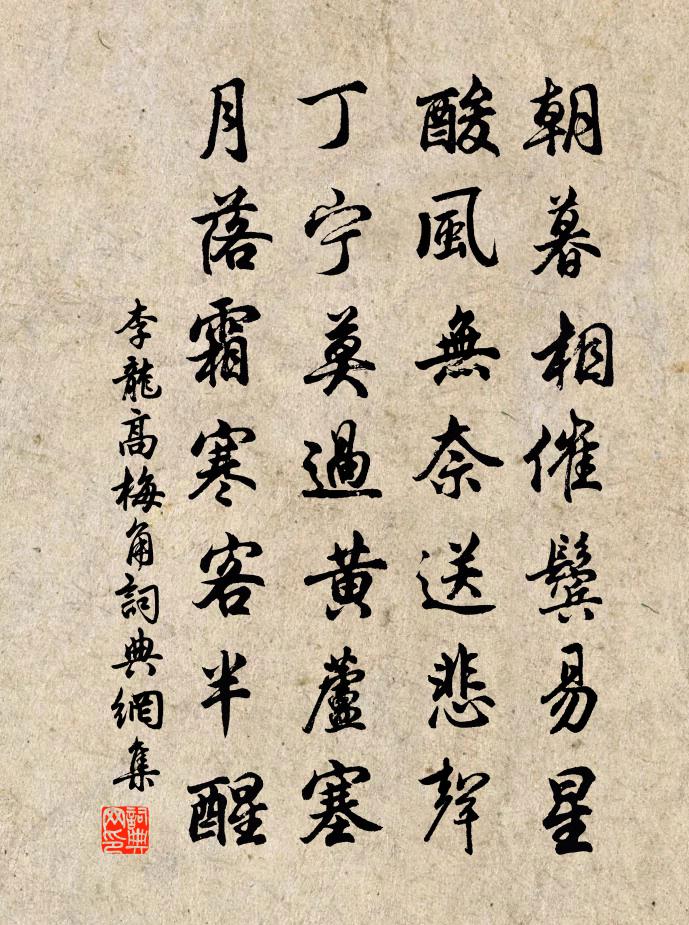 朝暮相催鬢易星
酸風無奈送悲聲
丁宁莫過黃蘆塞
月落霜寒客半醒
李龍高梅角詞典網集
詞典网印